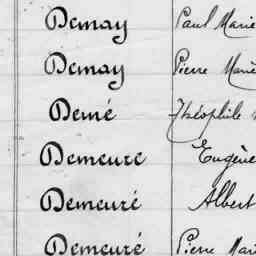 Demay Paul Marie
Demay Pierre Marie
Demé Théophile
Demeure Eugène
Demeuré Albert
Demeuré Pierre Mari